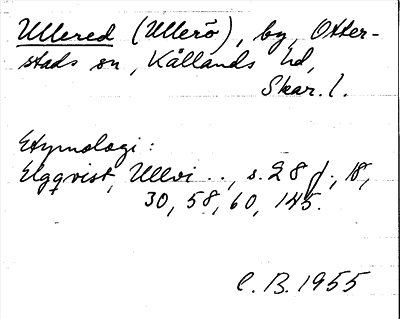 Ullered (Ullerö), by, Otter-
stads sn, Kållands hd,
Skar. l.
Etymologi:
Elgqvist, Ullvi .., s. 28 f., 18,
30, 58, 60, 145.
C. B. 1955